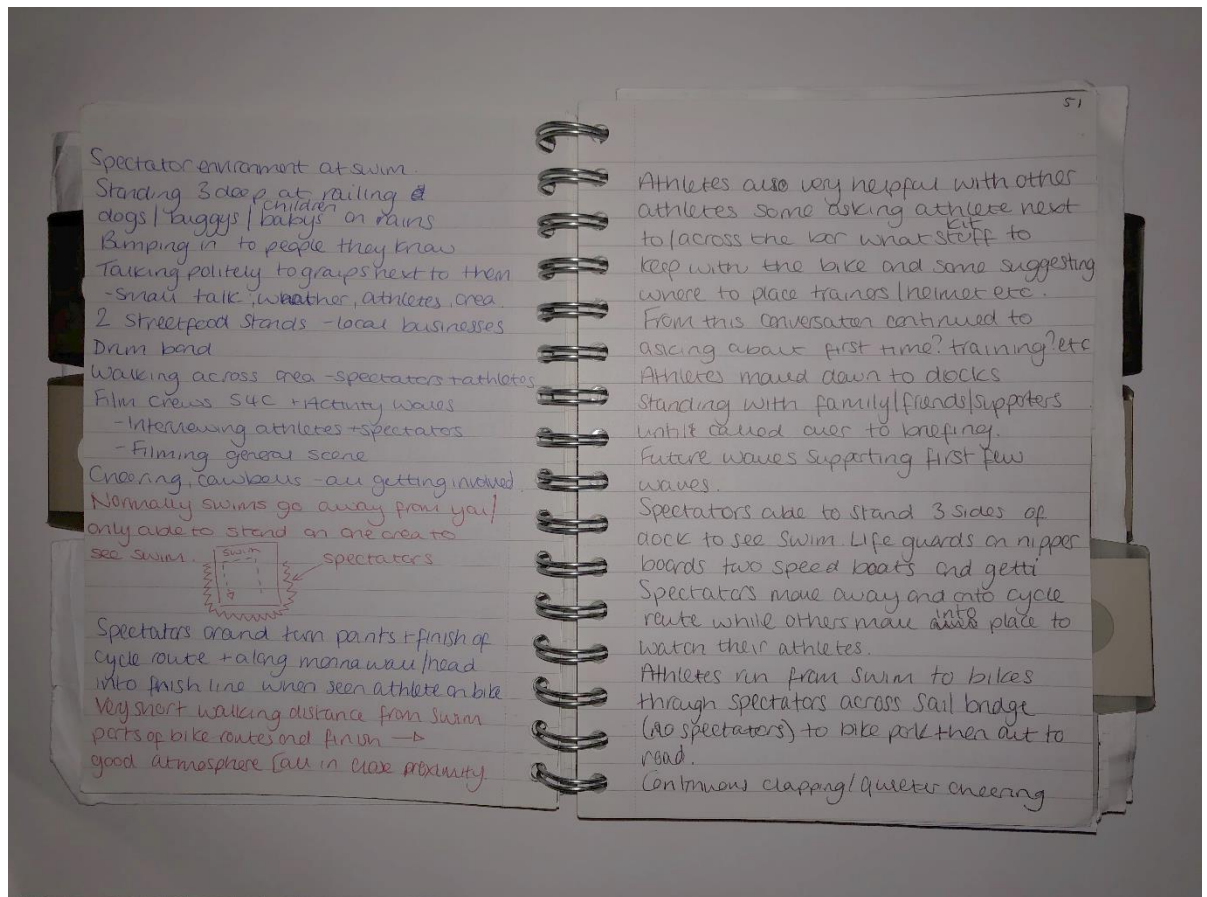 Spectator environment at swim.
Standing 3 deep at railing
dogs/buggys/babys children on rains
Bumping in to people they know
Talking politely to groups next to them
-small talk, weather, athletes, area
2 streetfood stands - local businesses
Drum band
Walking across area - spectators + athletes
Film crews S4C + Activity Wales
- Interviewing athletes + spectators
- Filming general scene
Cheering, cowbells - all getting involved.
Normally swims go away from you/
only able to stand on one area to
see swim.
swim
spectators
Spectators around turn points + finish of
cycle route + along marina wall/head
into finish line when seen athlete on bike
Very short walking distance from swim
parts of bike routes and finish →
good atmosphere [all in close proximity.
51
Athletes also very helpful with other
athletes some asking athlete next
to/across the bar what stuff kit to
keep with the bike and some suggesting
where to place trainers/helmet etc.
From this conversation continued to
asking about first time? training? etc
Athletes moved down to docks
Standing with family/friends/supporters
until called over to briefing.
Future waves supporting first few
waves.
Spectators able to stand 3 sides of
dock to see swim. Life guards on nipper
boards two speed boats and getti
Spectators move away and onto cycle
route while others move into place to
watch their athletes.
Athletes run from swim to bikes
through spectators across sail bridge
(no spectators) to bike park then out to
road.
Continuous clapping/quieter cheering